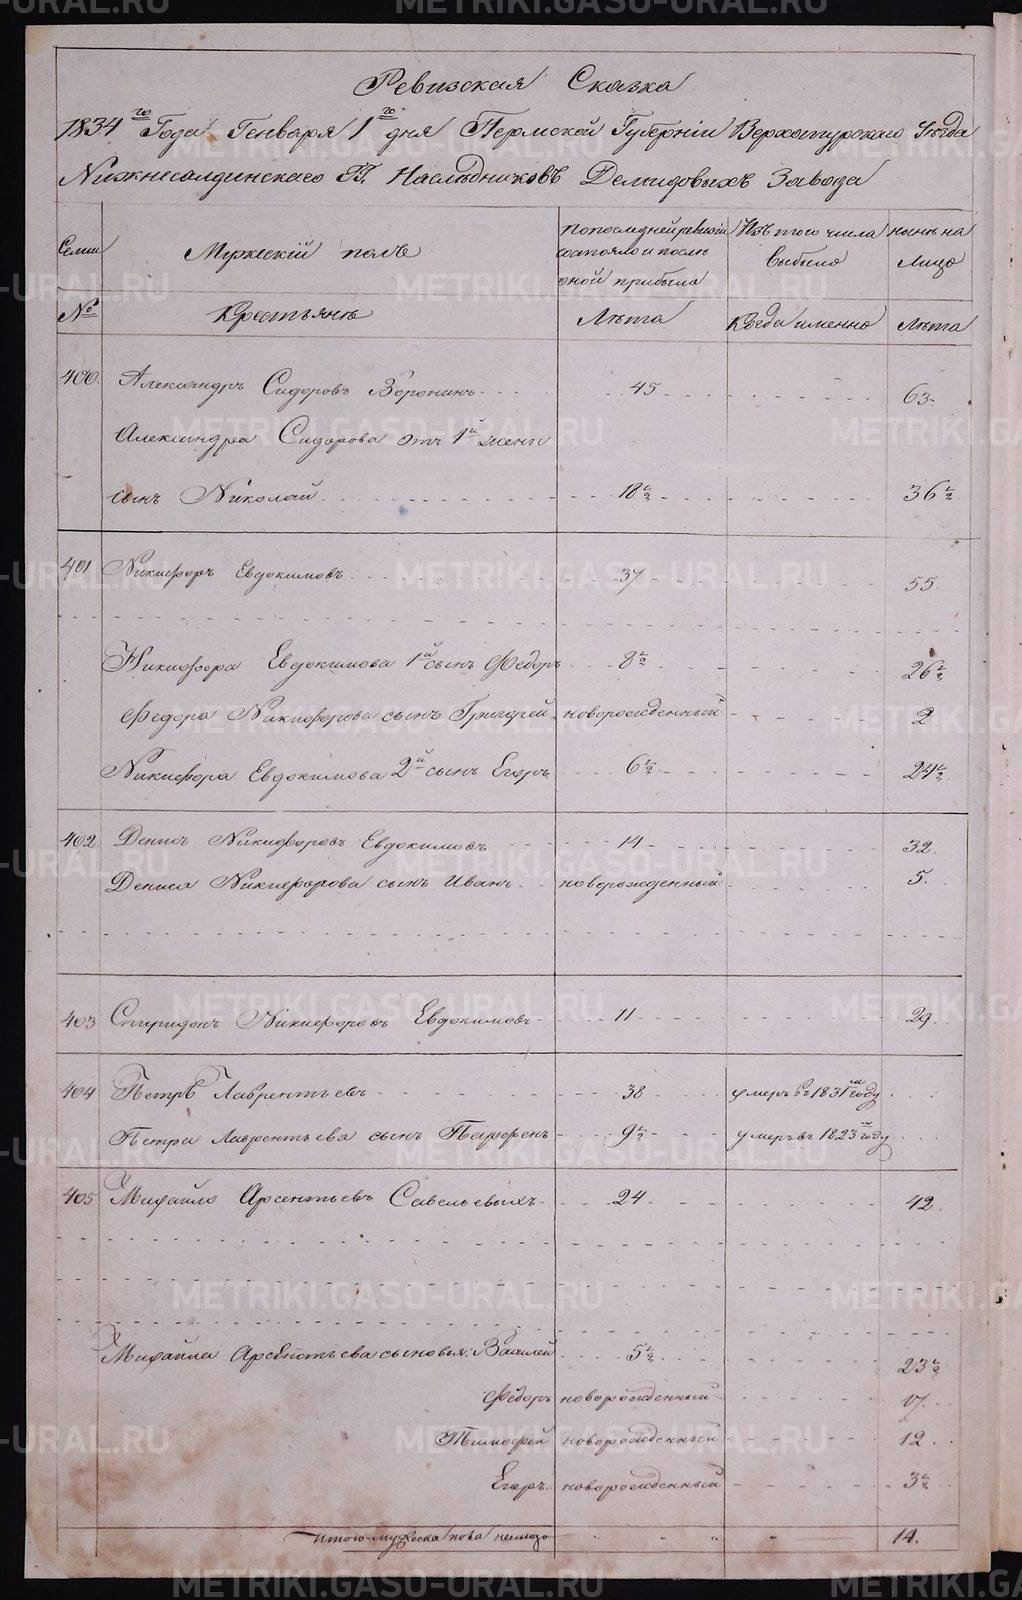 Ревизская Сказка
1834го Года Генваря 1го дня Пермской Губернiи Верхотурскаго Уезда
Нижнесалдинскаго Г.Г. Наследниковъ Демидовыхъ Завода
Семьи
Мужескiй полъ
по последней ревизiи состояло и после оной прибыло
Изъ того числа выбыло
ныне на Лицо
№
Крестьяне
Лета
Когда именно
Лета
400. Александръ Сидоровъ Воронинъ 45 63.
Александра Сидорова отъ 1й жены
сынъ Николай 18½ 36½
401 Никифоръ Евдокимовъ 37 55.
Никифора Евдокимова 1й сынъ Федоръ 8½ 26½
Федора Никифорова сынъ Григорей новорожденный 2
Никифора Евдокимова 2й сынъ Егоръ 6½ 24½
402 Денисъ Никифоровъ Евдокимовъ 14 32.
Дениса Никифорова сынъ Иванъ новорожденный 5.
403 Спиридонъ Никифоровъ Евдокимовъ 11 29.
404 Петръ Лаврентьевъ 38 умеръ въ 1831м году
Петра Лаврентьева сынъ Парфенъ 9½ умеръ въ 1823м году
405 Михайло Арсентьевъ Савельевыхъ 24 42.
Михайла Арсентьева сыновья: Василей 5½ 23½
Федоръ новорожденный 17.
Тимофей новорожденный 12
Егоръ новорожденный 3½
Итого мужеска пола налицо 14.
METRIKI.GASO-URAL.RU